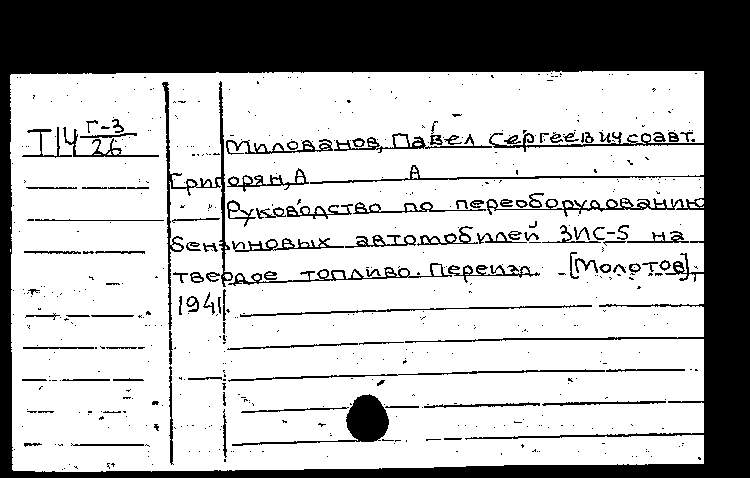 Т14 Г-3
26
Милованов, Павел Сергеевич соавт.
Григорян, А А
Руководство по переоборудованию
бензиновых автомобилей ЗИС-5 на
твердое топливо. Переизд. [Молотов],
1941.